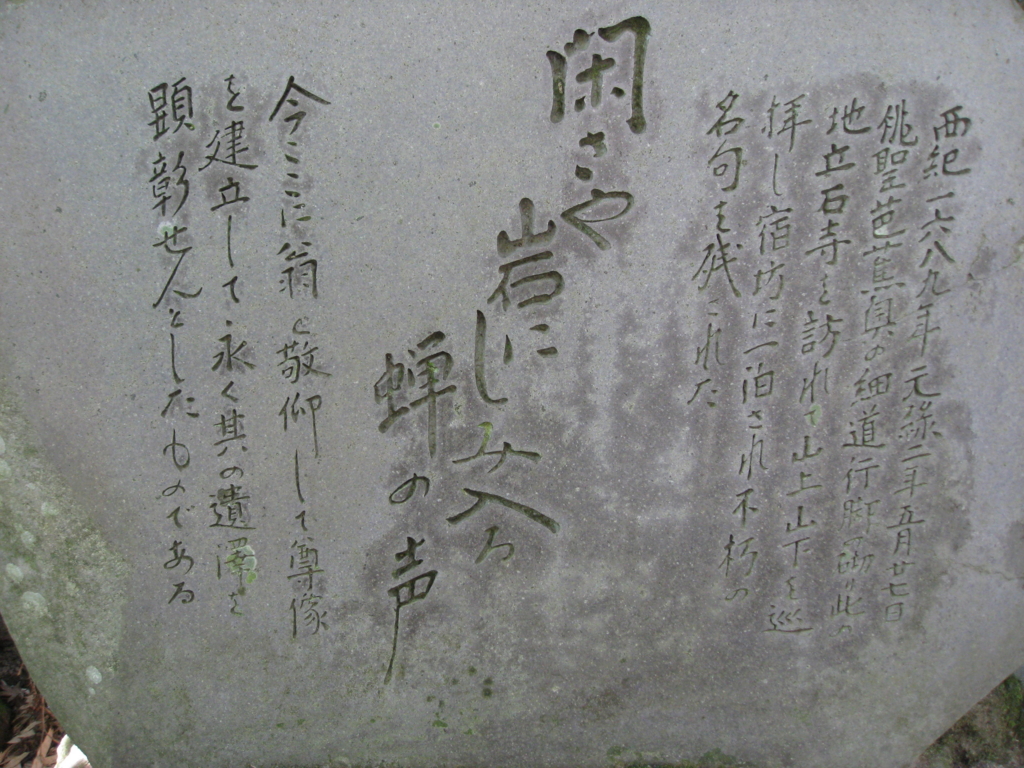 西紀一六八九年元禄二年五月廿七日
俳聖芭蕉奥の細道行脚の砌り此の
地立石寺を訪れて山上山下を巡
拝し宿坊に一泊され不朽の
名句を残された
閑さや
岩に
しみ入る
蝉の
声
今ここに翁を敬仰して尊像
を建立して永く其の遺澤を
顕彰せんとしたものである